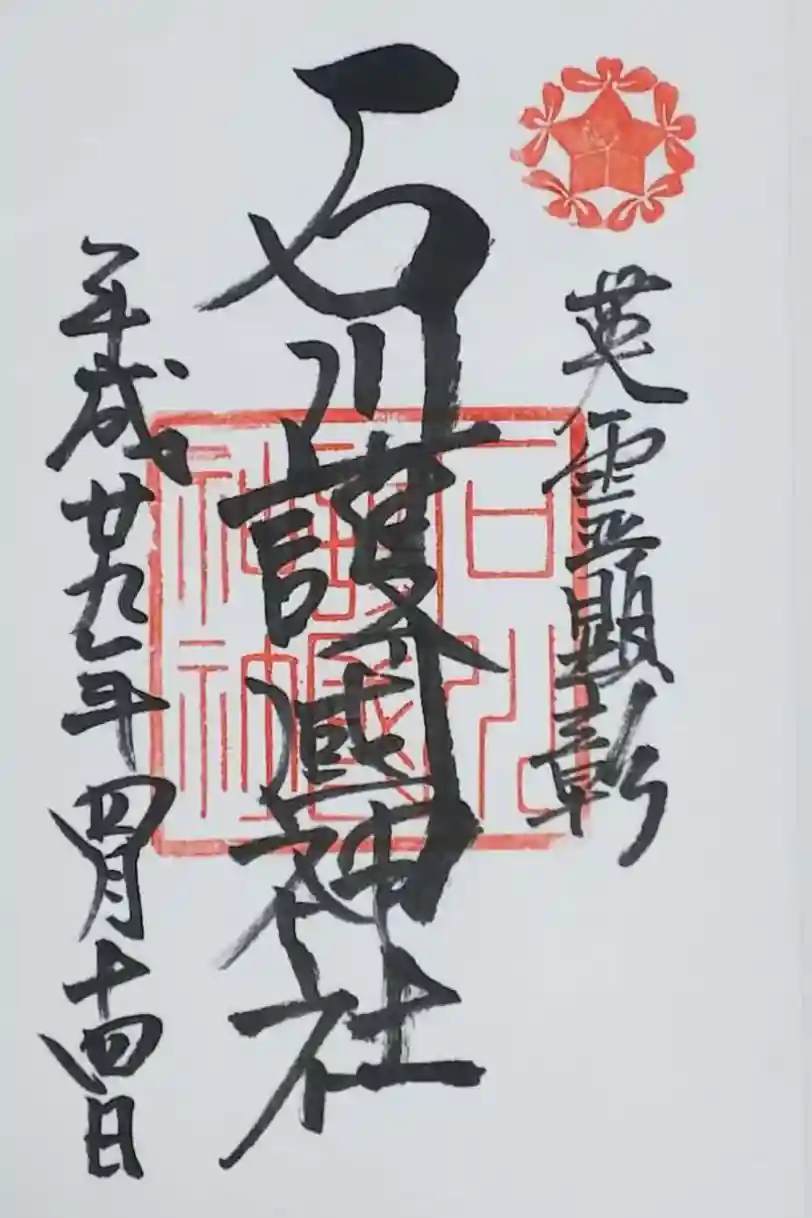 英霊顕彰
石川護國神社
平成廿九年四月十四日
石川護國神社